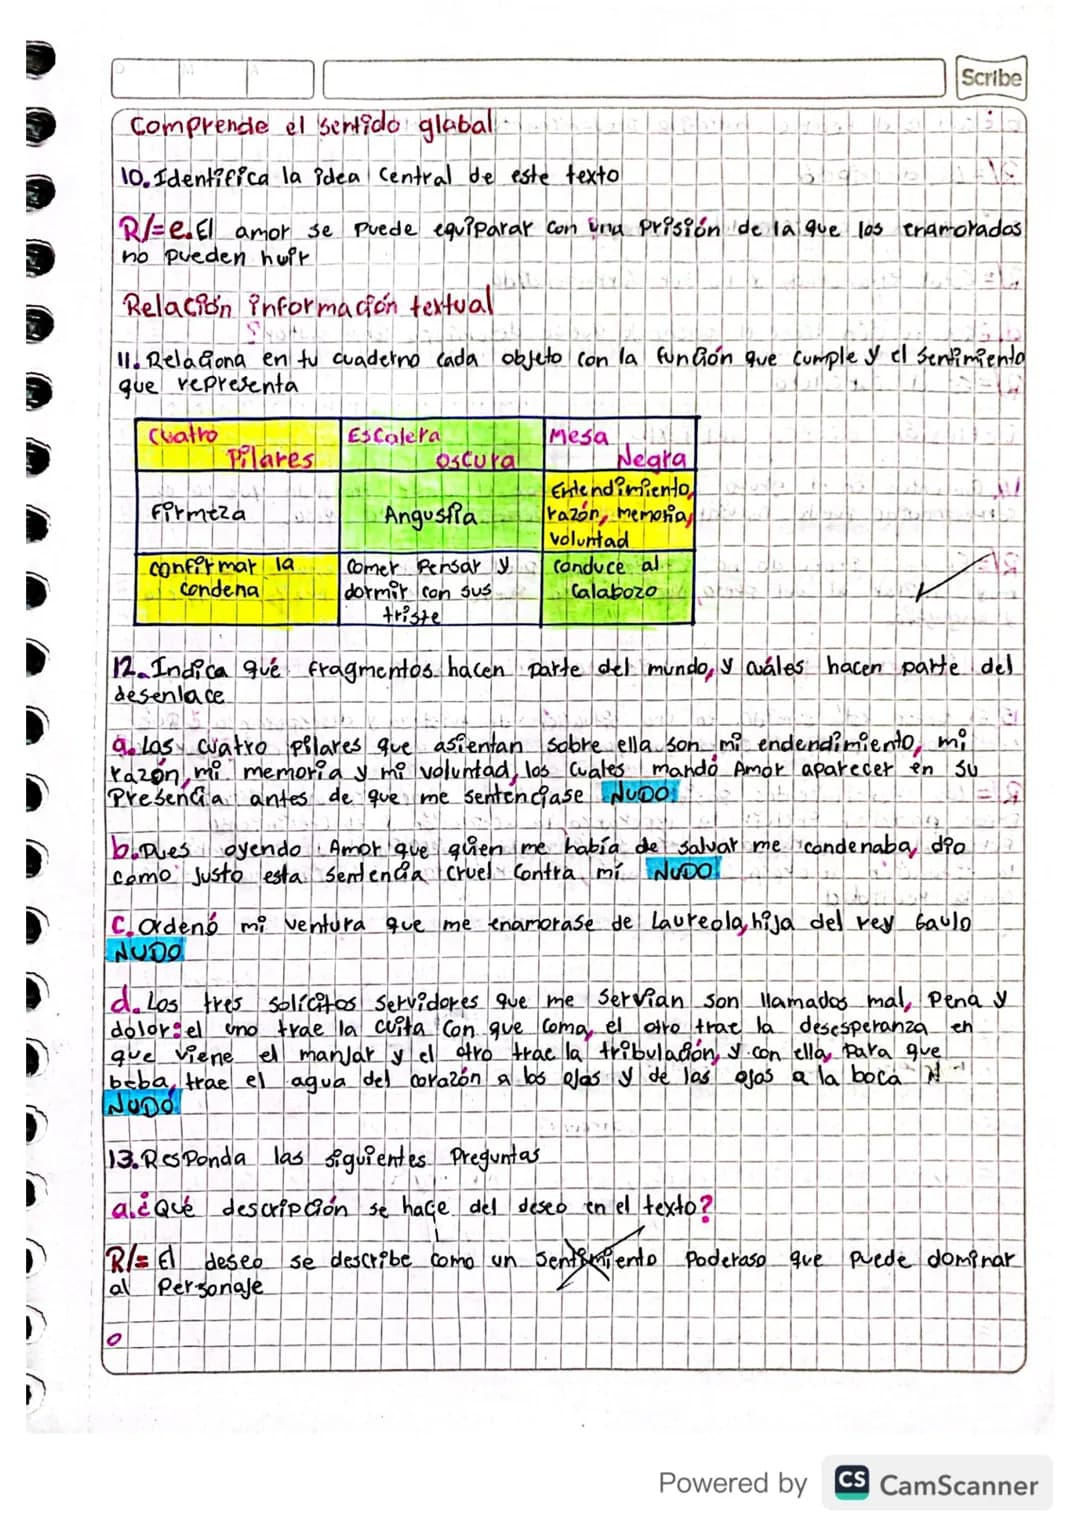 Scribe
Comprende el sentido global
10. Identifica la idea central de este texto
R/= e. El amor se puede equiparar con una prisión de la que los enamorados
no pueden huir
Relación información textual
11. Relaciona en tu cuaderno cada objeto con la función que cumple y el sentimiento
que representa
Cuatro Pilares
Escalera oscura
Mesa Negra
Firmeza
Angustia
Entendimiento,
razón, memoria,
voluntad
confirmar la
condena
comer Pensar y
dormir con sus
triste
conduce al
Calabozo
12. Indica qué fragmentos hacen parte del mundo, y cuáles hacen parte del
desenlace
a. Los cuatro pilares que asientan sobre ella son mi endendimiento, mi
razón, mi memoria y mi voluntad, los cuales mandó Amor aparecer en su
Presencia antes de que me sentenciase NUDO
b. Pues oyendo Amor que quien me había de salvar me condenaba, dio
como justo esta sentencia cruel contra mí NUDO
C. Ordenó mi ventura que me enamorase de Laureola, hija del rey Gaulo
NUDO
d. Los tres solícitos servidores que me servían son llamados mal, Pena y
dolor: el uno trae la cuita con que coma, el otro trae la desesperanza en
que viene el manjar y el otro trae la tribulación, y con ella, para que
beba, trae el agua del corazón a los ojos y de los ojos a la boca
NUDO
13. Responda las siguientes Preguntas
a. ¿Qué descripción se hace del deseo en el texto?
R/= El deseo se describe como un sentimiento Poderoso que puede dominar
al Personaje
Powered by CS CamScanner